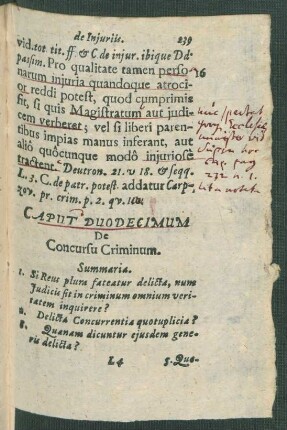 de Injuriis. 239
vid. tot. tit. ff. & C de injur. ibique Dd.
passim. Pro qualitate tamen perso- 16
narum injuria quandoque atroci-
or reddi potest, quod cumprimis
fit, si quis Magistratum aut judi-
cem verberet; vel si liberi paren-
tibus impias manus inferant, aut
aliô quôcunque modô injuriosè
tractent. Deutron. 21. v 18. & seqq.
L. 3. C. de patr. potest. addatur Carp-
zov. pr. crim. p. 2. qu.
CAPUT DUODECIMUM
De
Concursu Criminum.
Summaria.
1. Si Reus plura fateatur delicta, num
Judici sit in criminum omnium veri-
tatem inquirere?
2. Delicta Concurrentia quotuplicia?
3. Quænam dicuntur ejusdem gene-
ris delicta?
L4 5. Quo-
huc spectant
vid.
supra hoc
pag
232 n. 1.